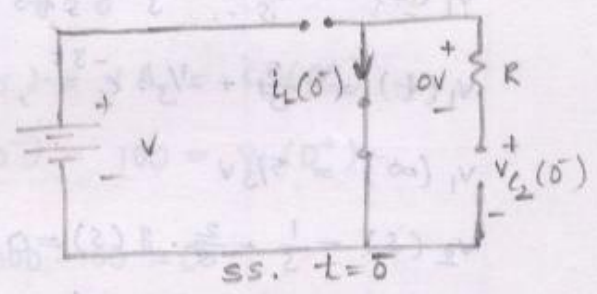 +
i_L(0⁻)
0V
-
R
+
V
-
+
V_{C_2}(0⁻)
-
s.s. t = 0⁻